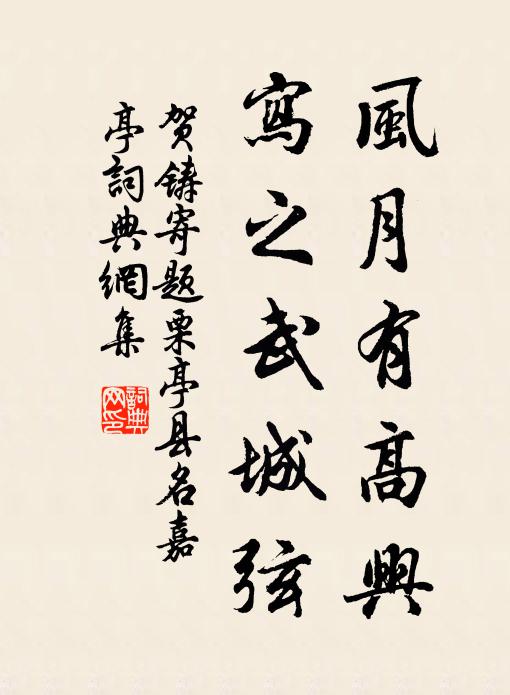 風月有高興
寫之武城弦
贺鑄寄题栗亭县名嘉
亭詞典網集
詞典
网印